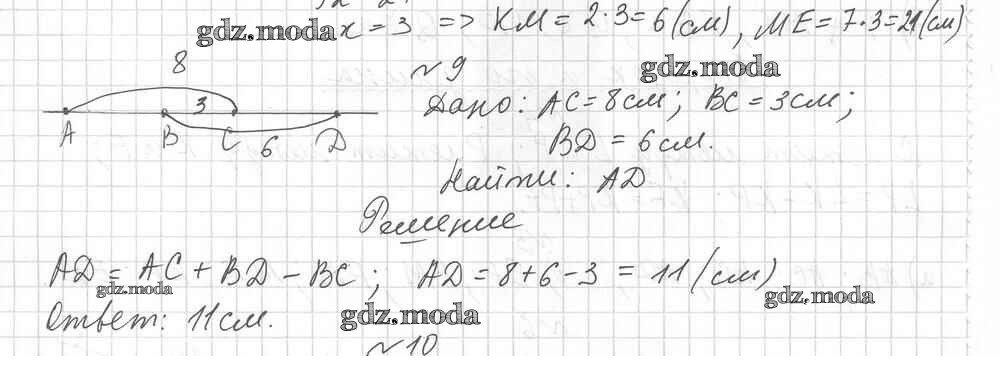 x = 3 => KM = 2·3 = 6 (см), ME = 7·3 = 21 (см)
gdz.moda
8
№ 9
gdz.moda
3
Дано: AC = 8 см; BC = 3 см;
A B C 6 D
BD = 6 см.
Найти: AD
Решение
AD = AC + BD – BC; AD = 8 + 6 – 3 = 11 (см)
gdz.moda
gdz.moda
Ответ: 11 см.
gdz.moda
№ 10